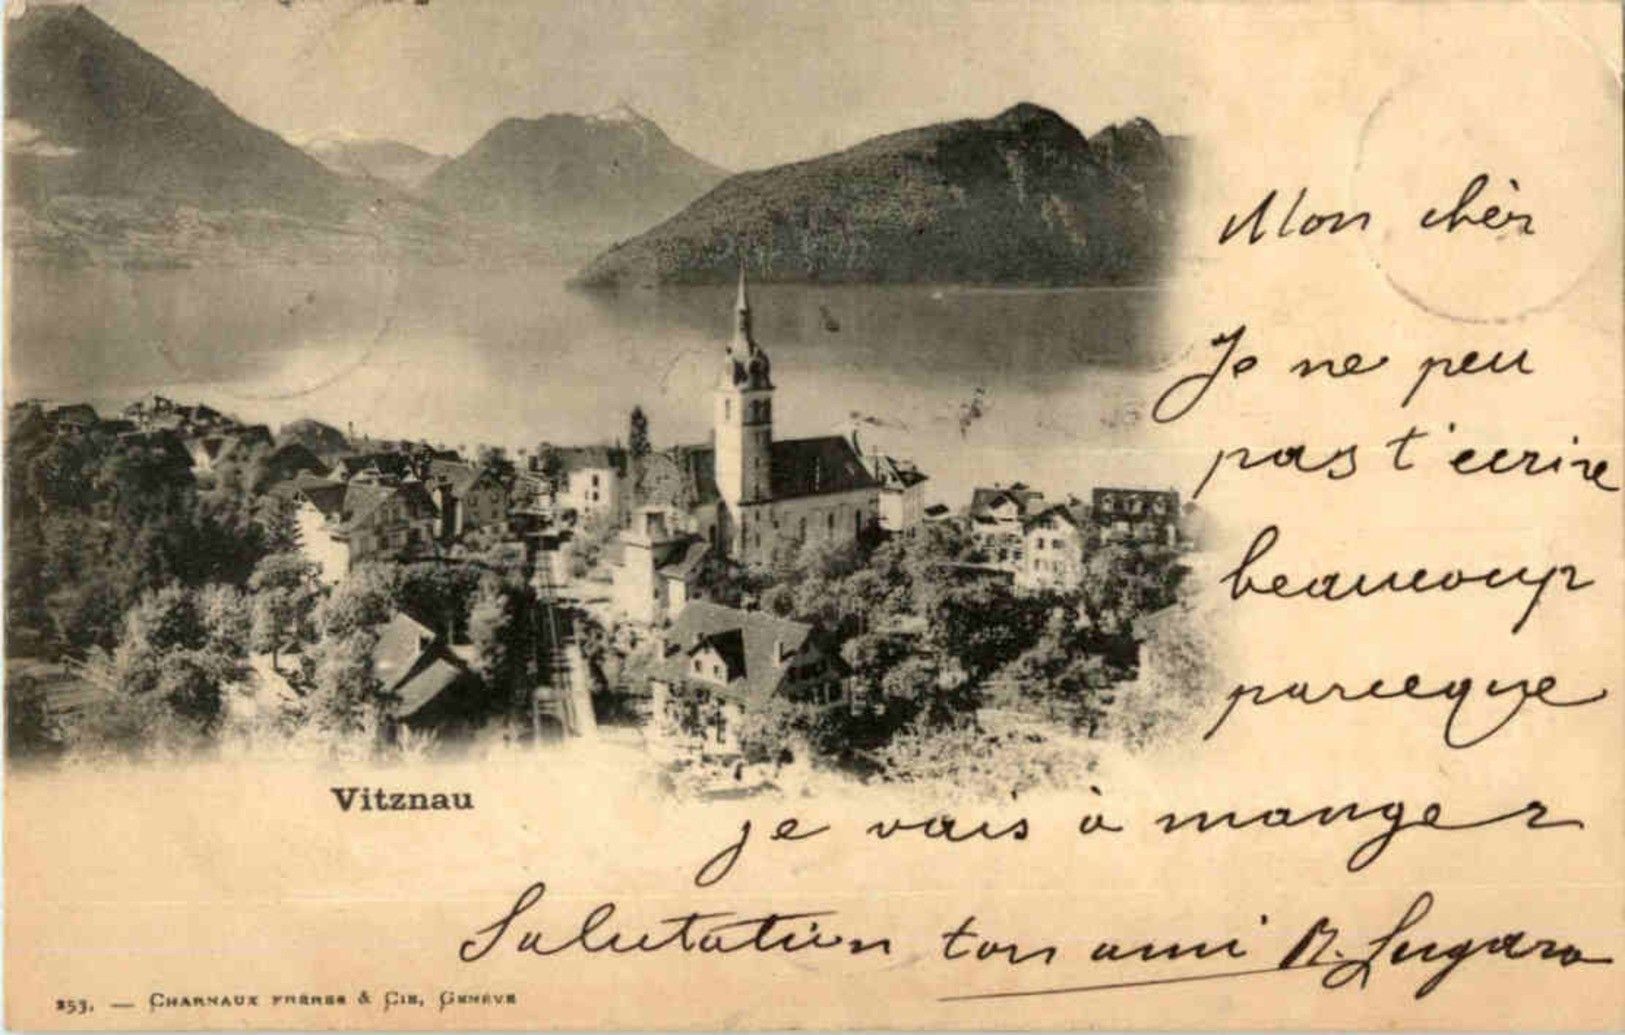 Mon chèr
Je ne peu
pas t'ecrire
beaucoup
parceque
je vais à manger
Salutation ton ami
Vitznau
253. — CHARNAUX FRÈRES & CIE, GENÈVE